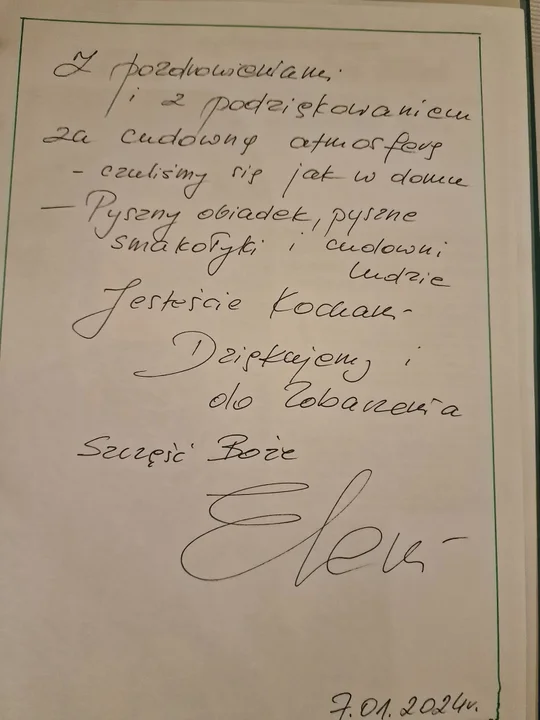 Z pozdrowieniami
i z podziękowaniem
za cudowną atmosferę
- czuliśmy się jak w domu
- Pyszny obiadek, pyszne
smakołyki i cudowni
ludzie
Jesteście Kochani
Dziękujemy i
do zobaczenia
Szczęść Boże
Eleni
7.01.2024r.